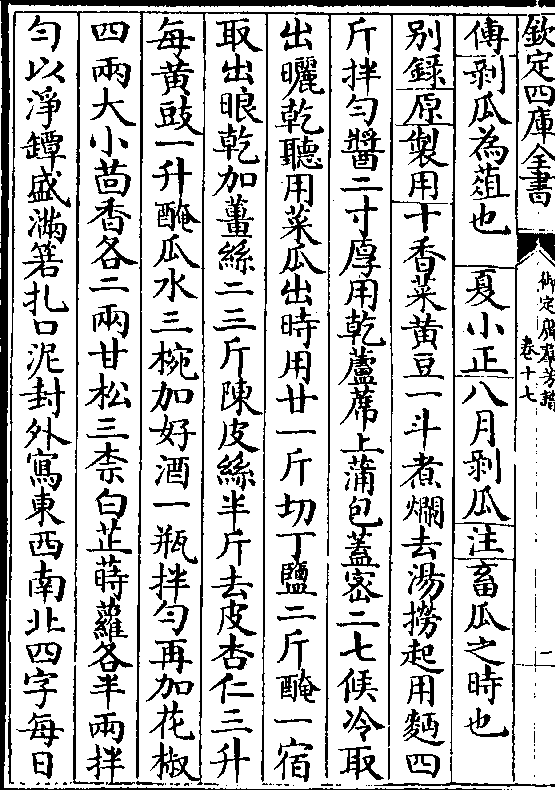 欽定四庫全書
御定佩文齋廣羣芳譜
卷十七
傳剥瓜為葅也 夏小正八月剥瓜注畜瓜之時也
别録原製用十香菜黄豆一斗煮爛去湯撈起用麵四
斤拌匀醬二寸厚用乾蘆蓆上蒲包蓋宻二七候冷取
出曬乾聽用菜瓜出時用廿一斤切丁鹽二斤醃一宿
取出晾乾加薑絲二三斤陳皮絲半斤去皮杏仁三升
每黄豉一升醃瓜水三椀加好酒一瓶拌匀再加花椒
四兩大小茴香各二兩甘松三柰白芷蒔蘿各半兩拌
匀以淨罈盛滿箬扎口泥封外寫東西南北四字每日